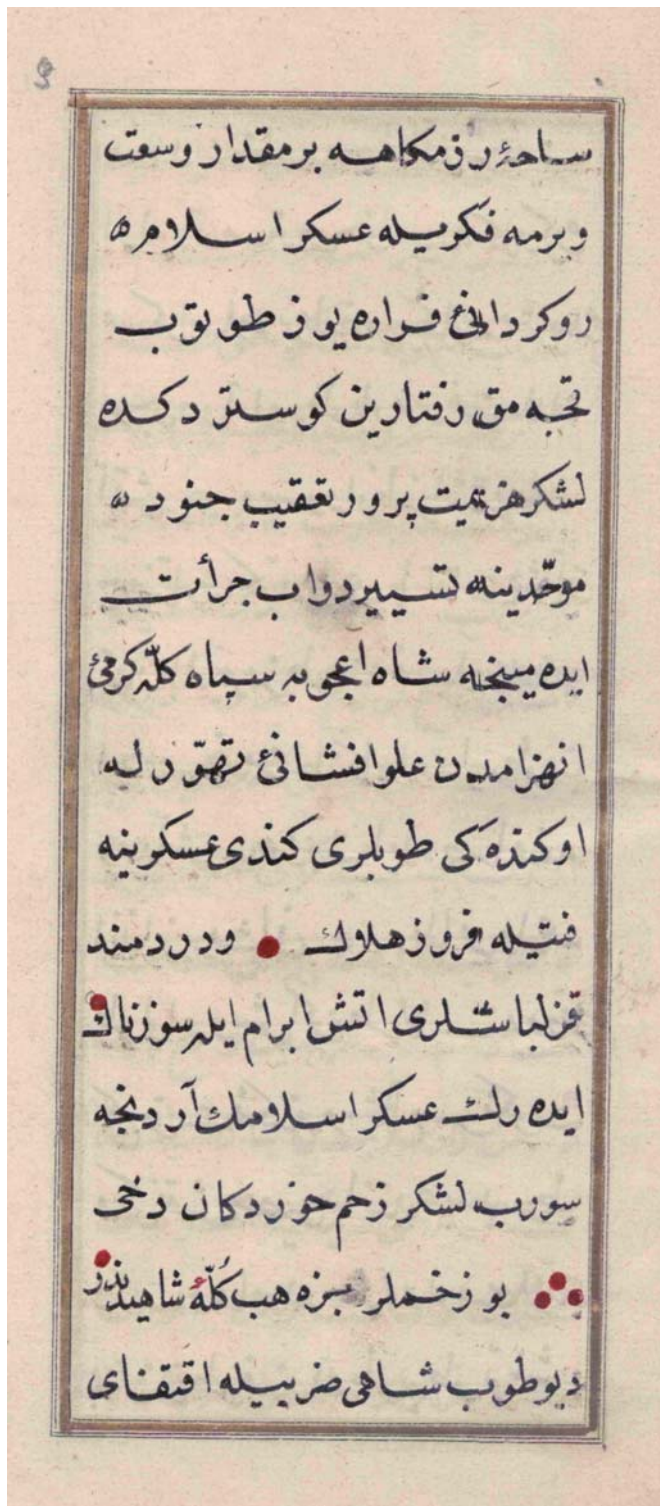 ساحهٔ رزمكاهه بر مقدار وسعت
ويرمه فكريله عسكر اسلامه
روكردانئ فراره يوز طوتوب
رفتارين كوستردكده
لشكر هزيمت پرور تعقيب جنود
موحّدينه تسيير دواب جرأت
ايده مينجه شاه اعجوبه سپاه كلّه كرمئ
انهزامدن علو افشانئ تهوّرله
اوكنده كى طوپلرى كندى عسكرينه
فتيله فروز هلاك ودردمند
قزلباشلرى اتش ابرام ايله سوزناك
ايده رك عسكر اسلامك آردنجه
سورب لشكر زخم خوردكان دخى
بو زخملر بزه هب كُلّهٔ شاهيدندر
ديو طوب شاهى ضربيله اقتفاى